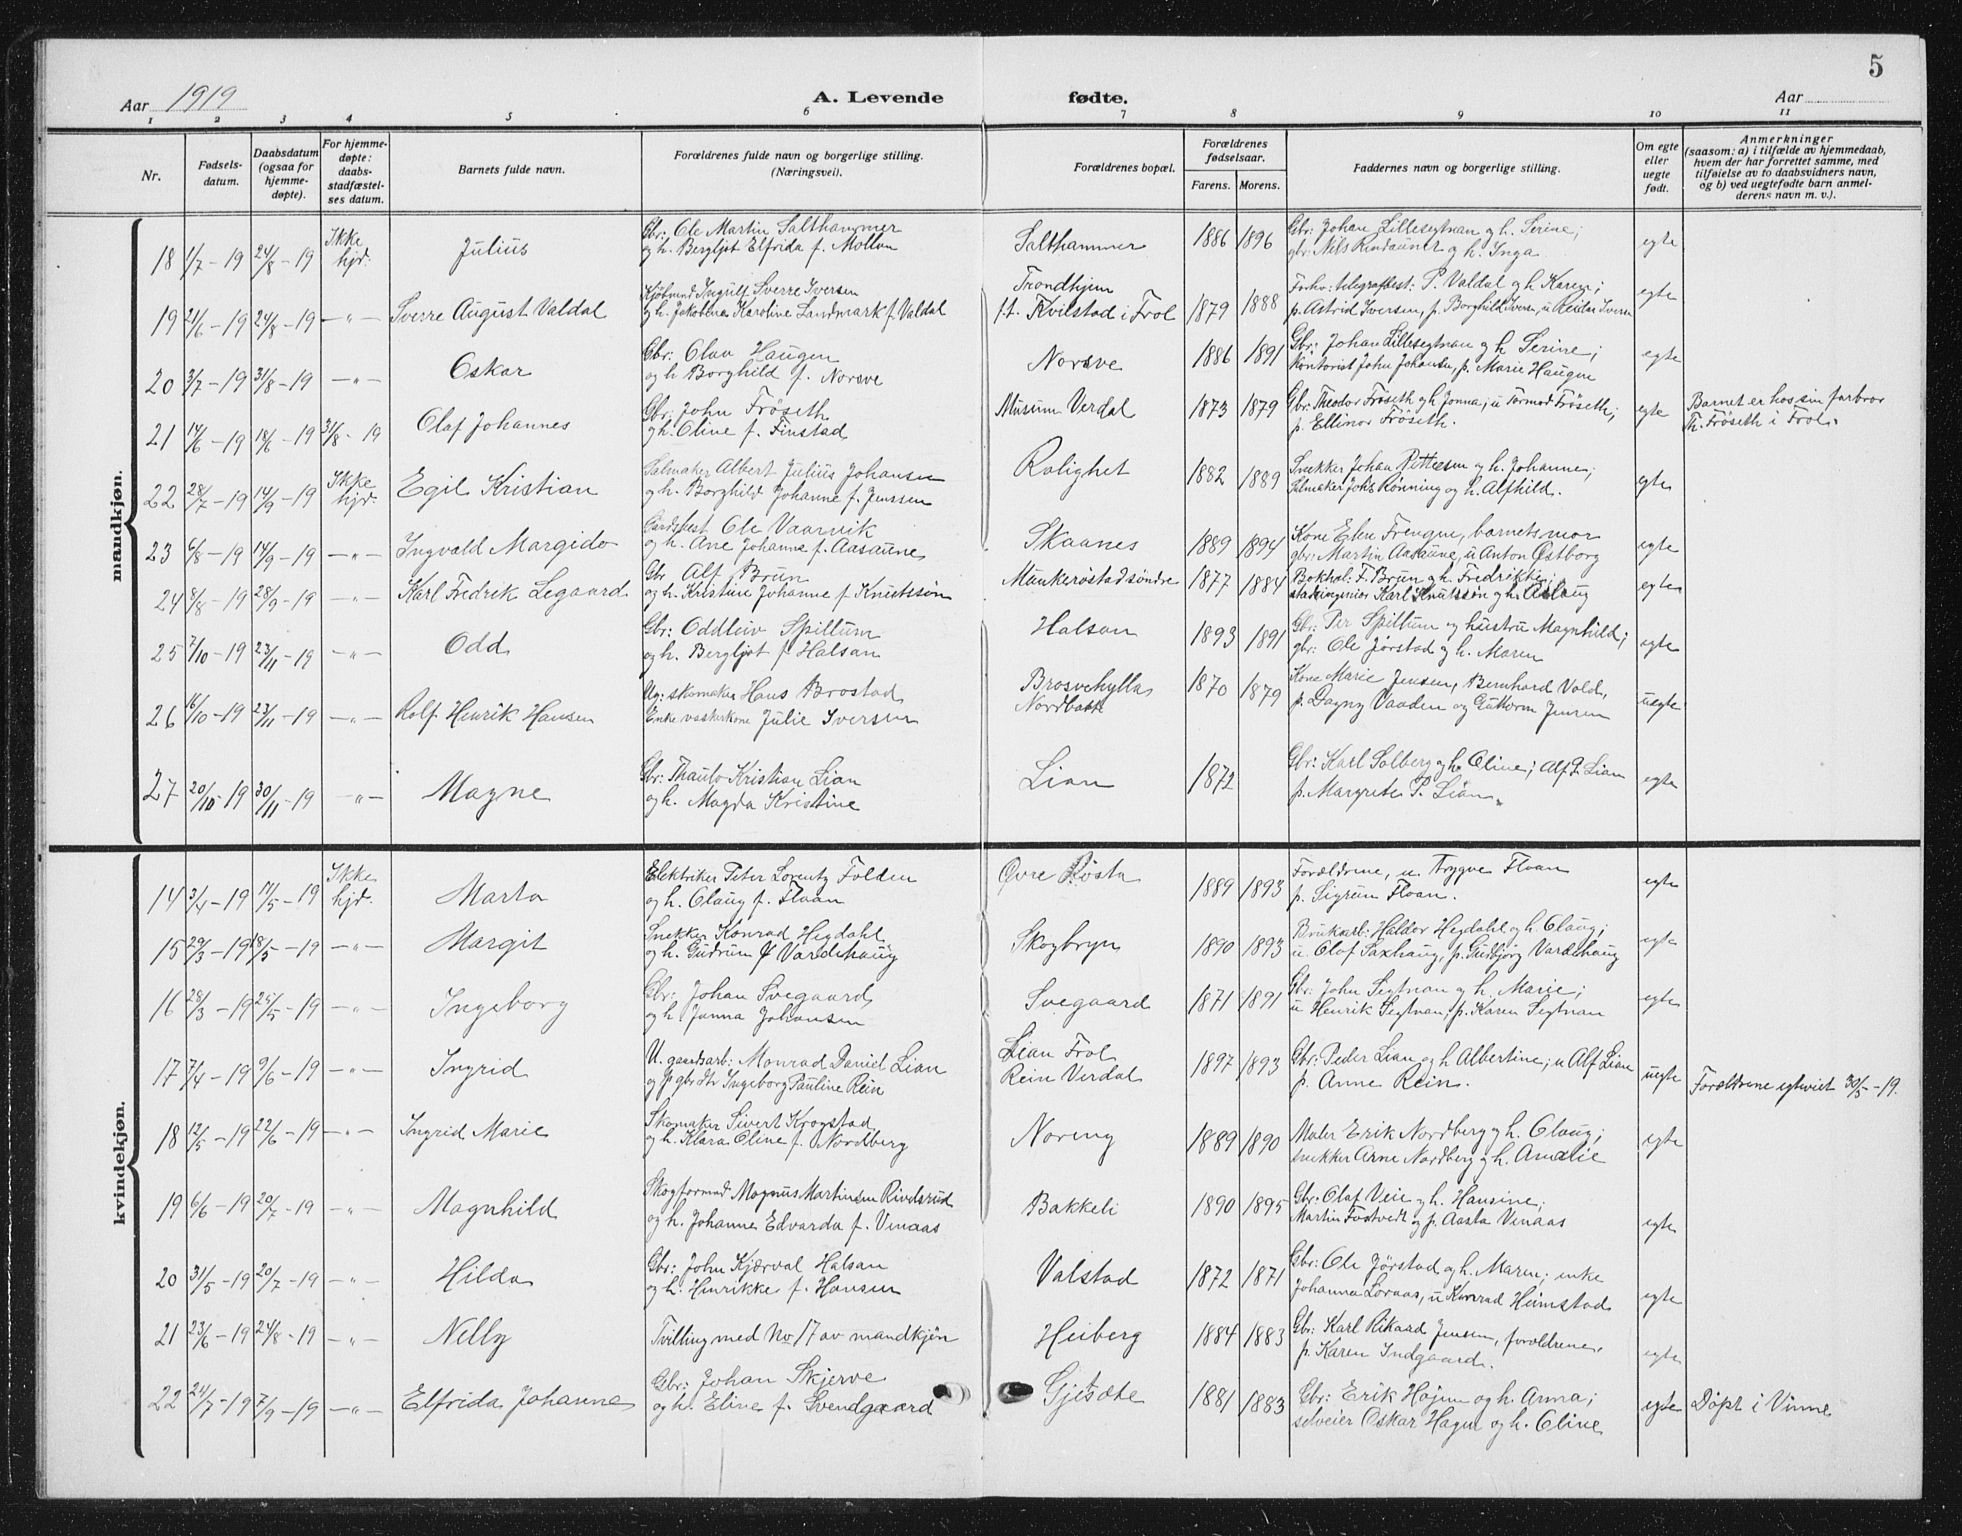 5
Aar 1919
A. Levende fødte.
Aar
1 2 3 4 5 6 7 8 9 10 11
Nr.
Fødsels-
datum.
Daabsdatum
(ogsaa for
hjemme-
døpte).
For hjemme-
døpte:
daabs-
stadfæstel-
ses datum.
Barnets fulde navn.
Forældrenes fulde navn og borgerlige stilling.
(Næringsvei).
Forældrenes bopæl.
Forældrenes
fødselsaar.
Farens. Morens.
Faddernes navn og borgerlige stilling.
Om egte
eller
uegte
født.
Anmerkninger
(saasom: a) i tilfælde av hjemmedaab,
hvem der har forrettet samme, med
tilføielse av to daabsvidners navn,
og b) ved uegtefødte barn anmel-
derens navn m. v.).
mandkjøn.
18 1/7-19 24/8-19 Ikke hjd. Julius
Gbr: Ole Martin Salthammer
og h. Bergljot Elfrida f. Mollan
Salthammer 1886 1896
Gbr: Johan Lillesegtnan og h. Serine;
gbr: Nils Rindaunet og h. Inga
egte
19 21/6-19 24/8-19 -"- Sverre August Valdal
Kjøbmnd Ingulf Sverre Iversen
og h. Jakobine Karoline Landmark f. Valdal
Trondhjem
f.t. Kvilstad i Frol 1879 1888
Forhv: telegrafbest: P. Valdal og h. Karen;
p. Astrid Iversen, p. Borghild Iversen, u Reidar Iversen
egte
20 3/7-19 31/8-19 -"- Oskar
Gbr: Olav Haugen
og h Borghild f. Norsve
Norsve 1886 1891
Gbr: Johan Lillesegtnan og h Serine;
Kontorist John Johansen, p. Marie Haugen
egte
21 14/6-19 18/6-19 31/8-19 Olaf Johannes
Gbr: John Frøseth
og h. Oline f. Finstad
Musum Verdal 1873 1879
Gbr: Theodor Frøseth og h Jonna; u Tormod Frøseth;
p. Ellinor Frøseth.
egte
Barnet er hos sin farbror
Th. Frøseth i Frol.
22 28/7-19 14/9-19 Ikke hjd. Egil Kristian
Salmaker Albert Julius Johansen
og h. Borghild Johanne f. Jenssen
Rolighet 1882 1889
Snekker Johan Pettersen og h. Johanne;
Salmaker Johs Rønning og h. Alfhild.
egte
23 6/8-19 14/9-19 -"- Ingvald Margido
Gardsbest Ole Vaarvik
og h. Ane Johanne f. Aasaune
Skaanes 1889 1894
Kone Elen Freugne, barnets mor
gbr: Martin Aasaune, u Anton Østborg
egte
24 8/8-19 28/9-19 -"- Karl Fredrik Legaard
Gbr. Alf Brun
og h. Kristine Johanne f. Knutssøn
Munkerøstad søndre 1877 1884
Bokhol: F. Brun og h. Fredrikke;
Karl Knutssøn og h. Aslaug
egte
25 7/10-19 23/11-19 -"- Odd
Gbr: Oddleiv Spillum
og h. Bergljot f Halsan
Halsan 1893 1891
Gbr: Per Spillum og hustru Magnhild;
gbr: Ole Jørstad og h. Maren
egte
26 16/10-19 23/11-19 -"- Rolf Henrik Hansen
Ug: skomaker Hans Brostad
Enke vaskerkone Julie Iversen
Brosvehylla
Nordbakk 1870 1879
Kone Marie Jensen, Bernhard Vold,
p. Dagny Vaaden og Guttorm Jensen
uegte
27 20/10-19 30/11-19 -"- Magne
Gbr: Thaulo Kristian Lian
og h. Magda Kristine
Lian 1872
Gbr: Karl Solberg og h Oline; Alf P. Lian
p. Margrete P. Lian.
egte
kvindekjøn.
14 3/4-19 17/5-19 Ikke hjd. Marta
Elektriker Peter Lorentz Folden
og h. Olaug f. Floan
Øvre Røsta 1889 1893
Forældrene, u. Trygve Floan
p. Sigrun Floan.
egte
15 29/3-19 18/5-19 -"- Margit
Snekker Konrad Hegdahl
og h. Gudrun f Vardehaug
Skogbryn 1890 1893
Brukarb: Haldor Hegdahl og h. Olaug;
u. Olaf Saxhaug, p. Gudbjørg Vardehaug
egte
16 28/3-19 25/5-19 -"- Ingeborg
Gbr: Johan Svegaard
og h. Janna Johansen
Svegaard 1871 1891
Gbr: John Segtnan og h. Marie;
u Henrik Segtnan, p. Karen Segtnan
egte
17 7/4-19 9/6-19 -"- Ingrid
U. gaardsarb: Monrad Daniel Lian
og p gbr dtr Ingeborg Pauline Rein
Lian Frol
Rein Verdal 1897 1893
Gbr: Peder Lian og h Albertine; u Alf Lian
p. Anne Rein.
uegte
Forældrene egteviet 30/5-19.
18 12/5-19 22/6-19 -"- Ingrid Marie
Skomaker Sivert Krogstad
og h. Klara Oline f. Nordberg
Noreng 1889 1890
Maler Erik Nordberg og h. Olaug;
snekker Arne Nordberg og h. Amalie
egte
19 6/6-19 20/7-19 -"- Magnhild
Skogformand Magnus Martinsen Rivelsrud
og h. Johanne Edvarda f. Venaas
Bakkeli 1890 1895
Gbr. Olaf Veie og h. Hansine;
Martin Fostvedt og p. Aasta Venaas
egte
20 31/5-19 20/7-19 -"- Hilda
Gbr: John Kjærval Halsan
og h. Henrikke f. Hansen
Valstad 1872 1871
Gbr: Ole Jørstad og h. Maren; enke
Johanna Loraas, u Konrad Heimstad
egte
21 23/6-19 24/8-19 -"- Nelly
Tvilling med No 17 av mandkjøn
Heiberg 1884 1883
Gbr: Karl Rikard Jensen, forældrene,
p. Karen Indgaard.
egte
22 24/7-19 7/9-19 -"- Elfrida Johanne
Gbr: Johan Skjerve
og h. Eline f. Svendgaard
Gjetsæte 1881 1883
Gbr: Erik Højem og h. Anna;
selveier Oskar Hagen og h. Oline
egte
Døpt i Vinne